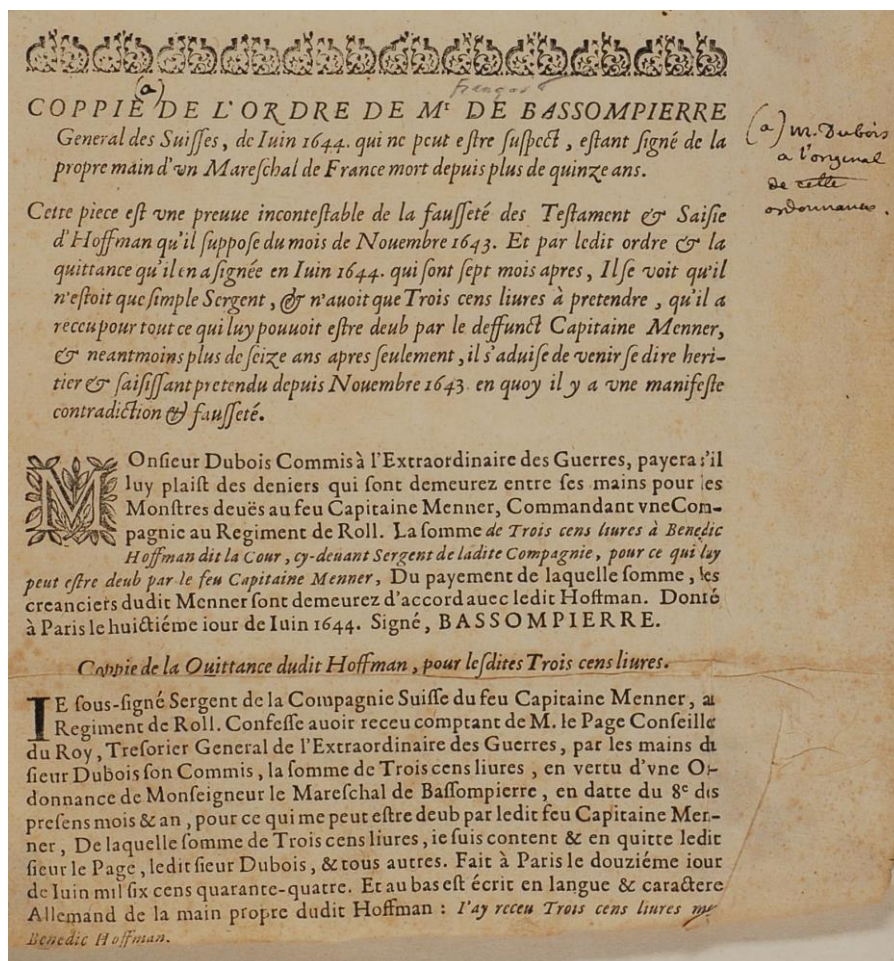 (a)
françois
COPPIE DE L'ORDRE DE Mr DE BASSOMPIERRE
General des Suisses, de Iuin 1644. qui ne peut estre suspect, estant signé de la
propre main d'vn Mareschal de France mort depuis plus de quinze ans.
(a) M. Dubois
a l'original
de cette
ordonnance.
Cette piece est vne preuue incontestable de la fausseté des Testament & Saisie
d'Hoffman qu'il suppose du mois de Nouembre 1643. Et par ledit ordre & la
quittance qu'il en a signée en Iuin 1644. qui sont sept mois apres, Il se voit qu'il
n'estoit que simple Sergent, & n'auoit que Trois cens liures à pretendre, qu'il a
receu pour tout ce qui luy pouuoit estre deub par le deffunct Capitaine Menner,
& neantmoins plus de seize ans apres seulement, il s'aduise de venir se dire heri-
tier & saisissant pretendu depuis Nouembre 1643. en quoy il y a vne manifeste
contradiction & fausseté.
MOnsieur Dubois Commis à l'Extraordinaire des Guerres, payera s'il
luy plaist des deniers qui sont demeurez entre ses mains pour les
Monstres deuës au feu Capitaine Menner, Commandant vne Com-
pagnie au Regiment de Roll. La somme de Trois cens liures à Benedic
Hoffman dit la Cour, cy-deuant Sergent de ladite Compagnie, pour ce qui luy
peut estre deub par le feu Capitaine Menner, Du payement de laquelle somme, les
creanciers dudit Menner sont demeurez d'accord auec ledit Hoffman. Donné
à Paris le huictiéme iour de Iuin 1644. Signé, BASSOMPIERRE.
Coppie de la Quittance dudit Hoffman, pour lesdites Trois cens liures.
IE sous-signé Sergent de la Compagnie Suisse du feu Capitaine Menner, au
Regiment de Roll. Confesse auoir receu comptant de M. le Page Conseille
du Roy, Tresorier General de l'Extraordinaire des Guerres, par les mains du
sieur Dubois son Commis, la somme de Trois cens liures, en vertu d'vne Or-
donnance de Monseigneur le Mareschal de Bassompierre, en datte du 8e des
presens mois & an, pour ce qui me peut estre deub par ledit feu Capitaine Men-
ner, De laquelle somme de Trois cens liures, ie suis content & en quitte ledit
sieur le Page, ledit sieur Dubois, & tous autres. Fait à Paris le douziéme iour
de Iuin mil six cens quarante-quatre. Et au bas est écrit en langue & caractere
Allemand de la main propre dudit Hoffman : I'ay receu Trois cens liures
Benedic Hoffman.